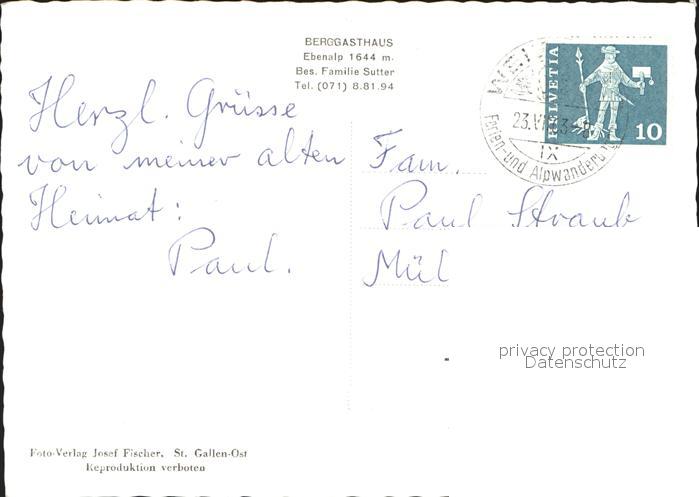 BERGGASTHAUS
Ebenalp 1644 m.
Bes. Familie Sutter
Tel. (071) 8.81.94
Herzl. Grüsse
von meiner alten
Heimat:
Paul.
HELVETIA
10
23.VI
IX
Ferien- und Alpwander
Fam.
Paul Straub
Mül
privacy protection
Datenschutz
Foto-Verlag Josef Fischer, St. Gallen-Ost
Reproduktion verboten